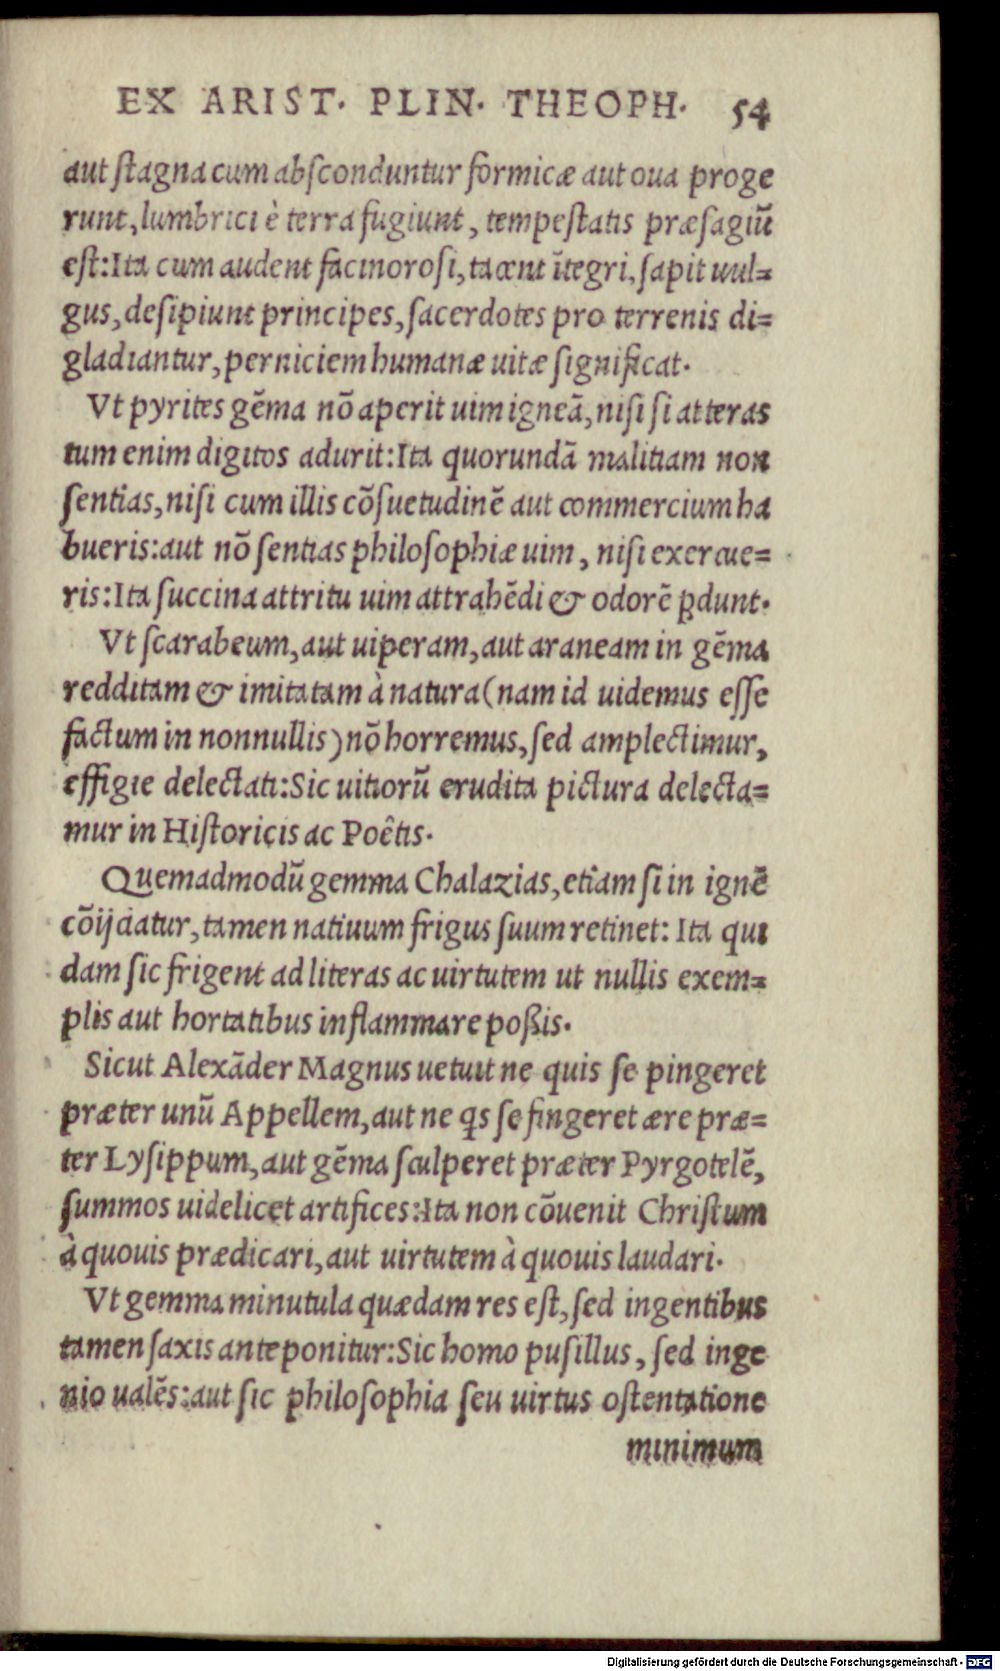 EX ARIST. PLIN. THEOPH. 54
aut ſtagna cum abſconduntur formicæ aut oua proge
runt, lumbrici è terra fugiunt, tempeſtatis præſagiū
eſt: Ita cum audent facinoroſi, tacent ītegri, ſapit uul=
gus, deſipiunt principes, ſacerdotes pro terrenis di=
gladiantur, perniciem humanæ uitæ ſignificat.
Vt pyrites gēma nō aperit uim igneā, niſi ſi atteras
tum enim digitos adurit: Ita quorundā malitiam non
ſentias, niſi cum illis cōſuetudinē aut commercium ha
bueris: aut nō ſentias philoſophiæ uim, niſi exercue=
ris: Ita ſuccina attritu uim attrahēdi & odorē ꝓdunt.
Vt ſcarabeum, aut uiperam, aut araneam in gēma
redditam & imitatam à natura (nam id uidemus eſſe
factum in nonnullis) nō horremus, ſed amplectimur,
effigie delectati: Sic uitiorū erudita pictura delecta=
mur in Hiſtoricis ac Poêtis.
Quemadmodū gemma Chalazias, etiam ſi in ignē
cōijciatur, tamen natiuum frigus ſuum retinet: Ita qui
dam ſic frigent ad literas ac uirtutem ut nullis exem=
plis aut hortatibus inflammare poßis.
Sicut Alexāder Magnus uetuit ne quis ſe pingeret
præter unū Appellem, aut ne qs ſe fingeret ære præ=
ter Lyſippum, aut gēma ſculperet præter Pyrgotelē,
ſummos uidelicet artifices: Ita non cōuenit Chriſtum
à quouis prædicari, aut uirtutem à quouis laudari.
Vt gemma minutula quædam res eſt, ſed ingentibus
tamen ſaxis anteponitur: Sic homo puſillus, ſed inge
nio ualēs: aut ſic philoſophia ſeu uirtus oſtentatione
minimum
Digitalisierung gefördert durch die Deutsche Forschungsgemeinschaft - DFG